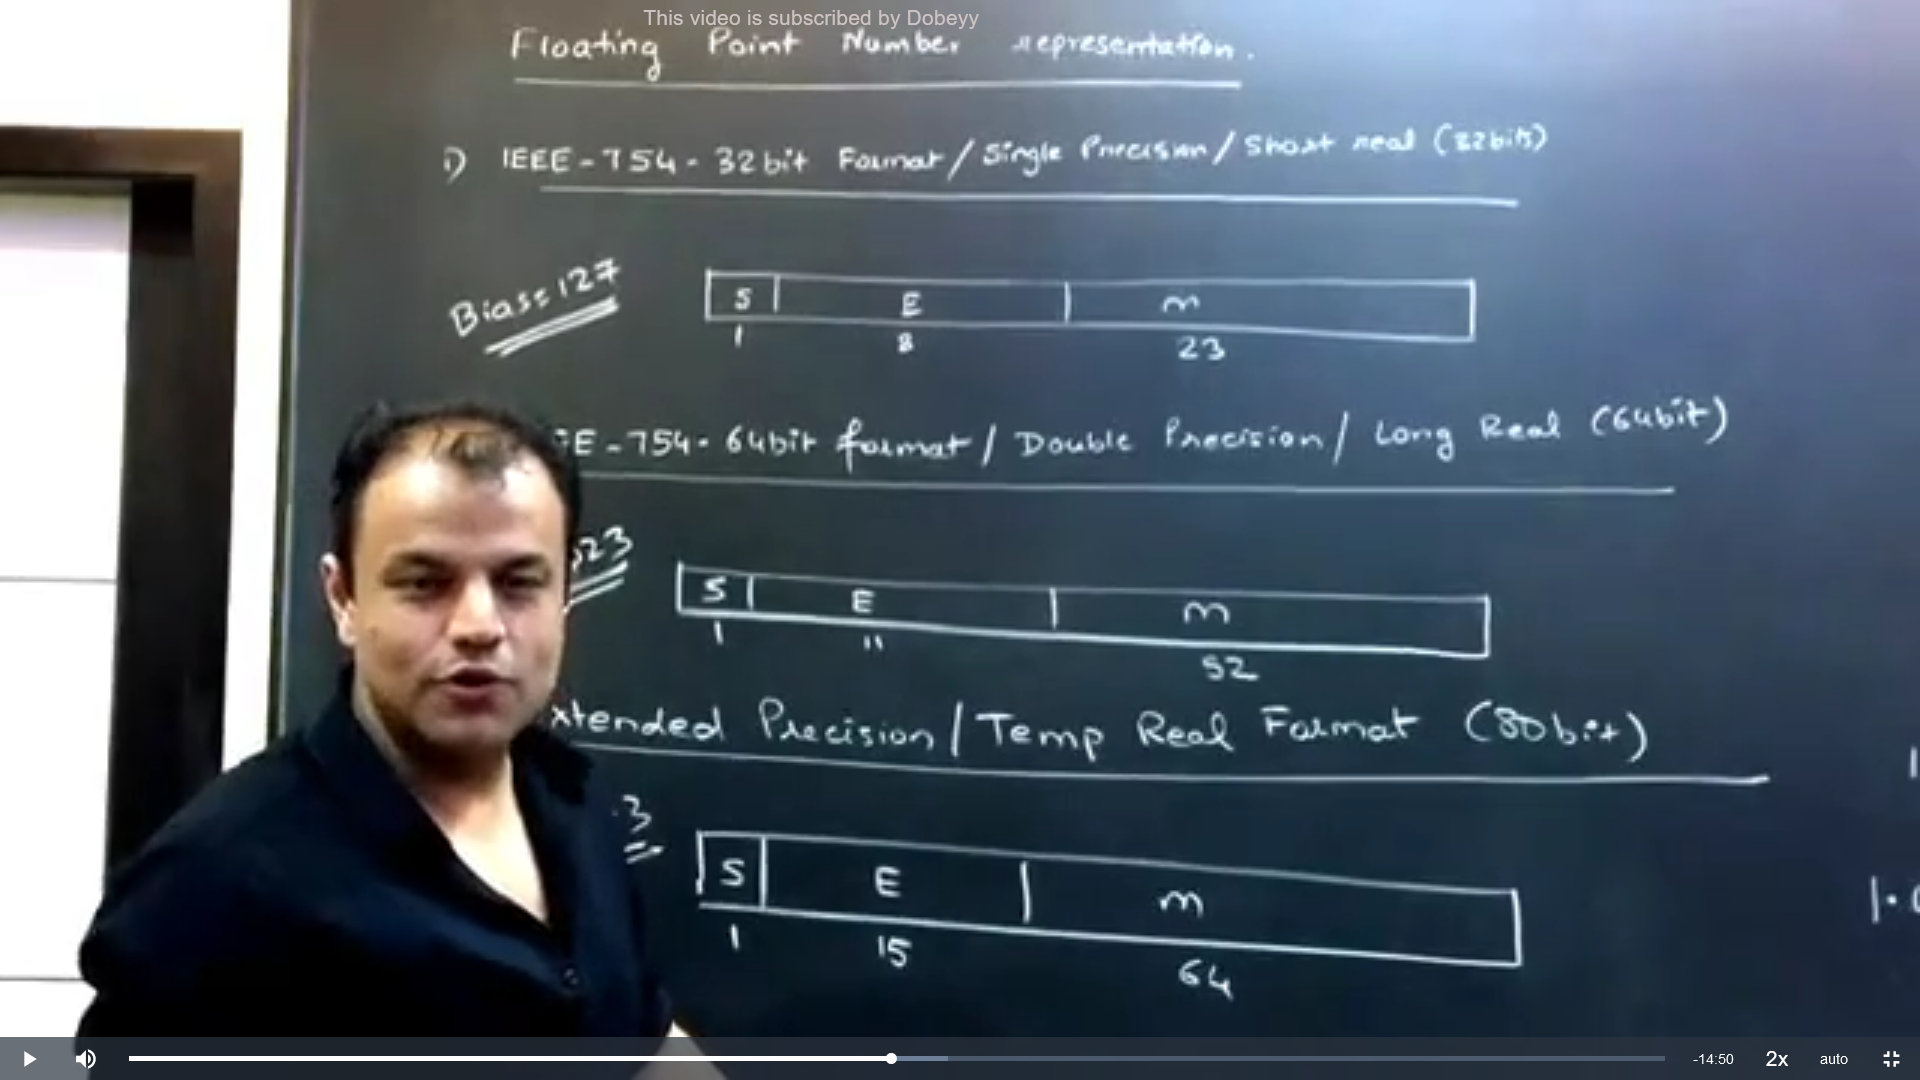 This video is subscribed by Dobeyy
Floating Point Number representation.
i) IEEE - 754 - 32 bit Format / Single Precision / Short real (32bits)
Bias = 127
S E m
1 8 23
EE - 754 - 64bit format / Double Precision / Long Real (64bit)
023
S E m
1 11 52
xtended Precision / Temp Real Format (80bit)
3
S E m
1 15 64
1.
-14:50 2x auto